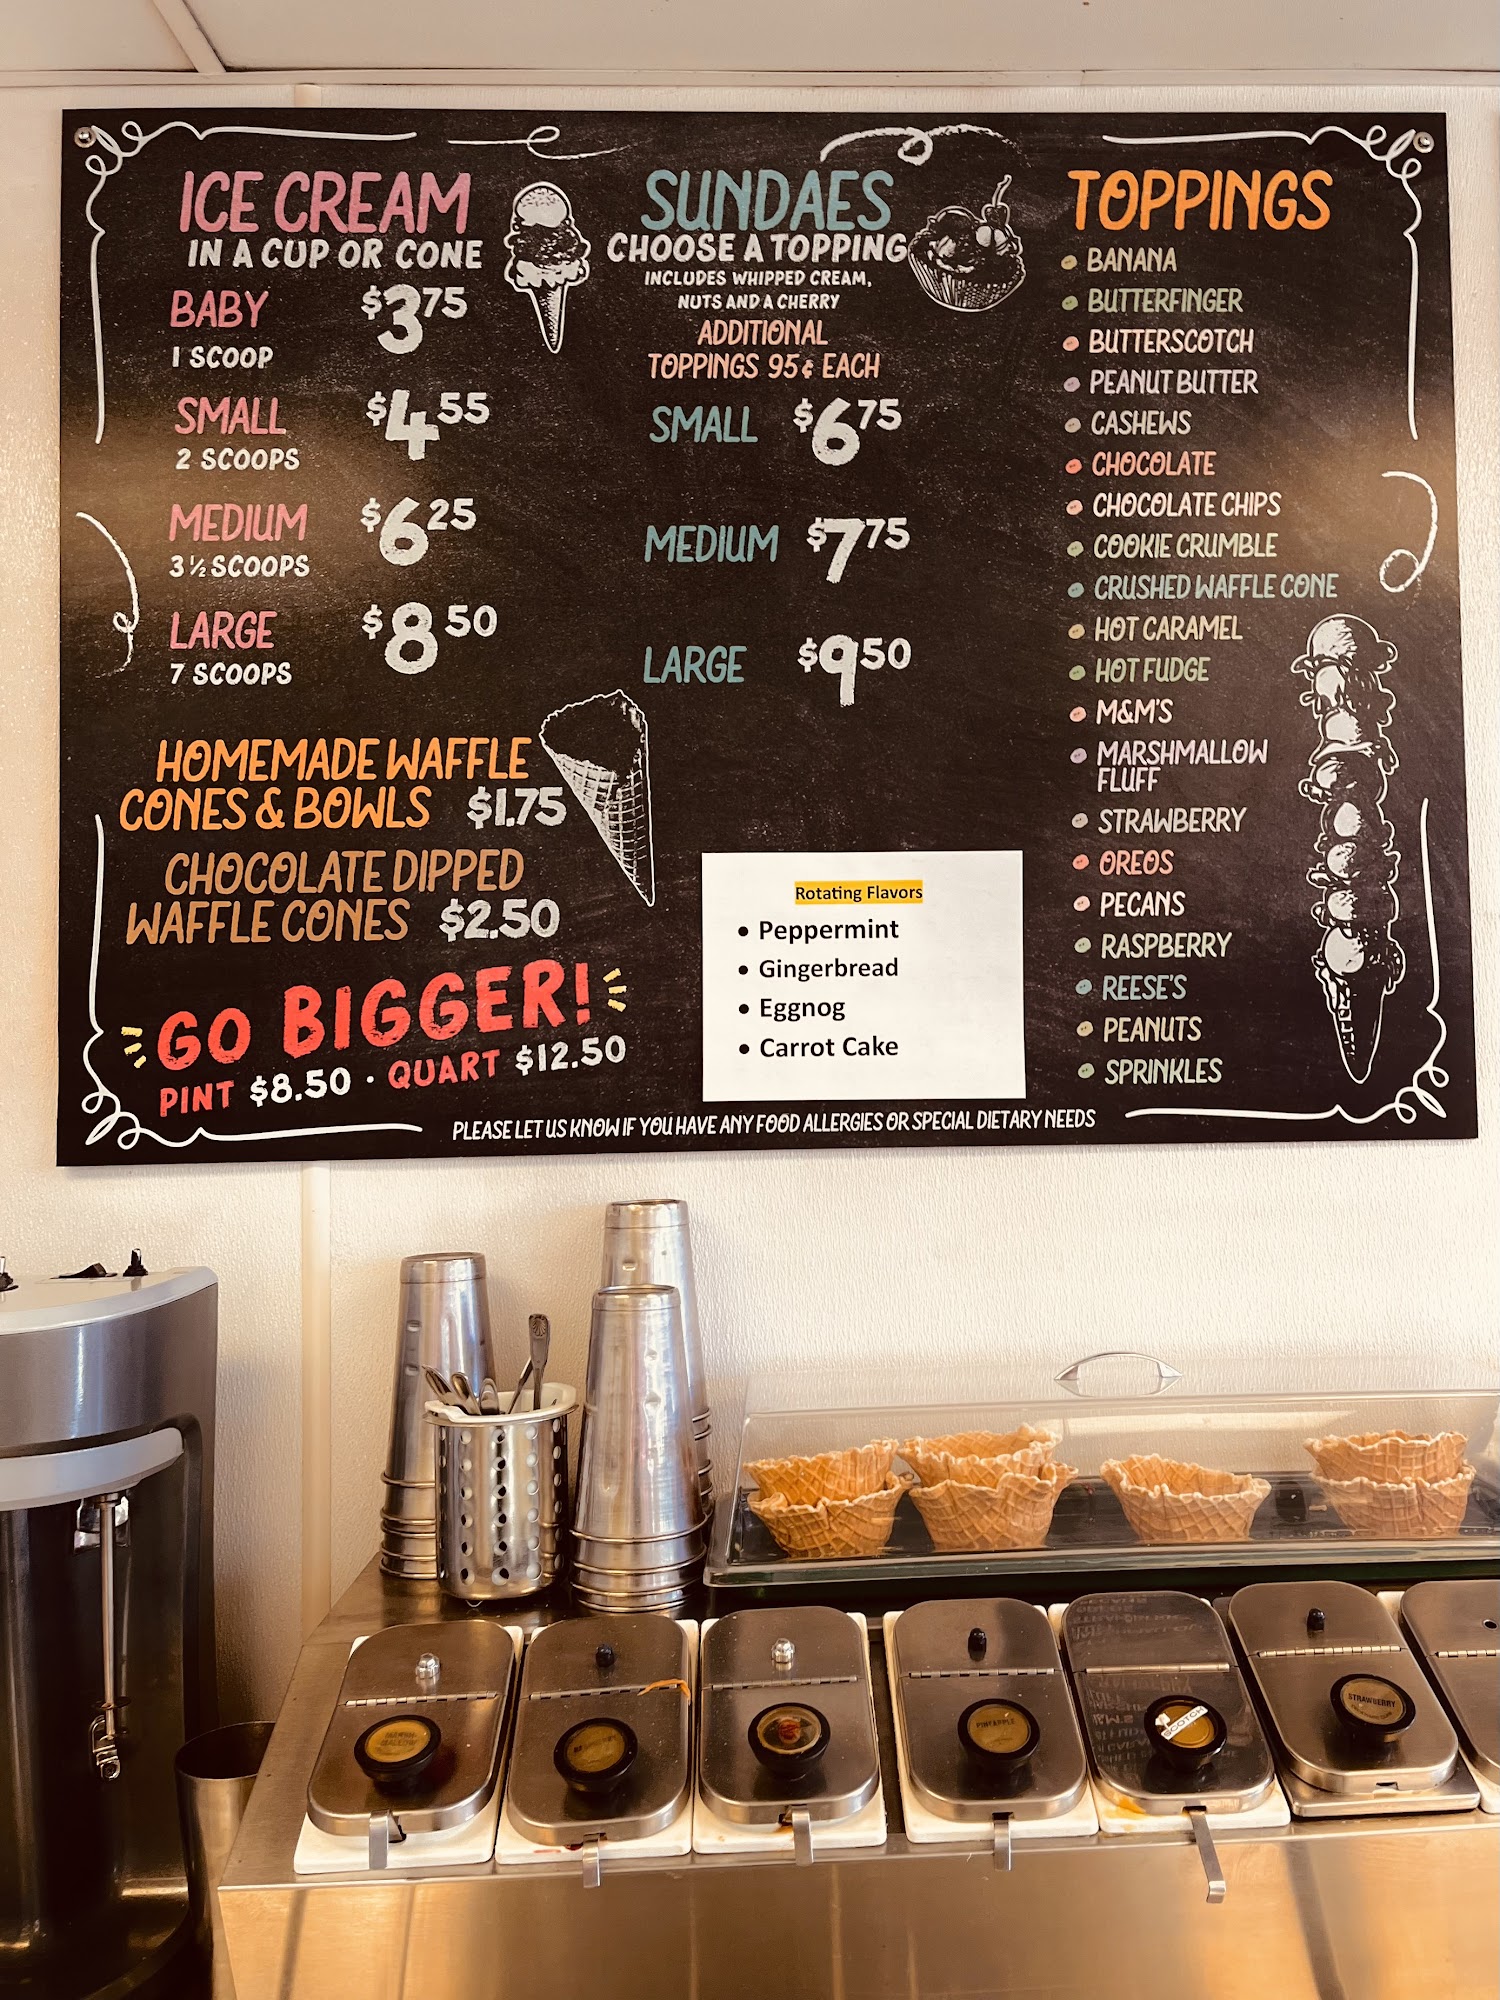 ICE CREAM
IN A CUP OR CONE
BABY $3.75
1 SCOOP
SMALL $4.55
2 SCOOPS
MEDIUM $6.25
3 ½ SCOOPS
LARGE $8.50
7 SCOOPS
HOMEMADE WAFFLE
CONES & BOWLS $1.75
CHOCOLATE DIPPED
WAFFLE CONES $2.50
GO BIGGER!
PINT $8.50 · QUART $12.50
SUNDAES
CHOOSE A TOPPING
INCLUDES WHIPPED CREAM,
NUTS AND A CHERRY
ADDITIONAL
TOPPINGS 95¢ EACH
SMALL $6.75
MEDIUM $7.75
LARGE $9.50
Rotating Flavors
• Peppermint
• Gingerbread
• Eggnog
• Carrot Cake
TOPPINGS
BANANA
BUTTERFINGER
BUTTERSCOTCH
PEANUT BUTTER
CASHEWS
CHOCOLATE
CHOCOLATE CHIPS
COOKIE CRUMBLE
CRUSHED WAFFLE CONE
HOT CARAMEL
HOT FUDGE
M&M'S
MARSHMALLOW
FLUFF
STRAWBERRY
OREOS
PECANS
RASPBERRY
REESE'S
PEANUTS
SPRINKLES
PLEASE LET US KNOW IF YOU HAVE ANY FOOD ALLERGIES OR SPECIAL DIETARY NEEDS
PINEAPPLE
SCOTCH
STRAWBERRY